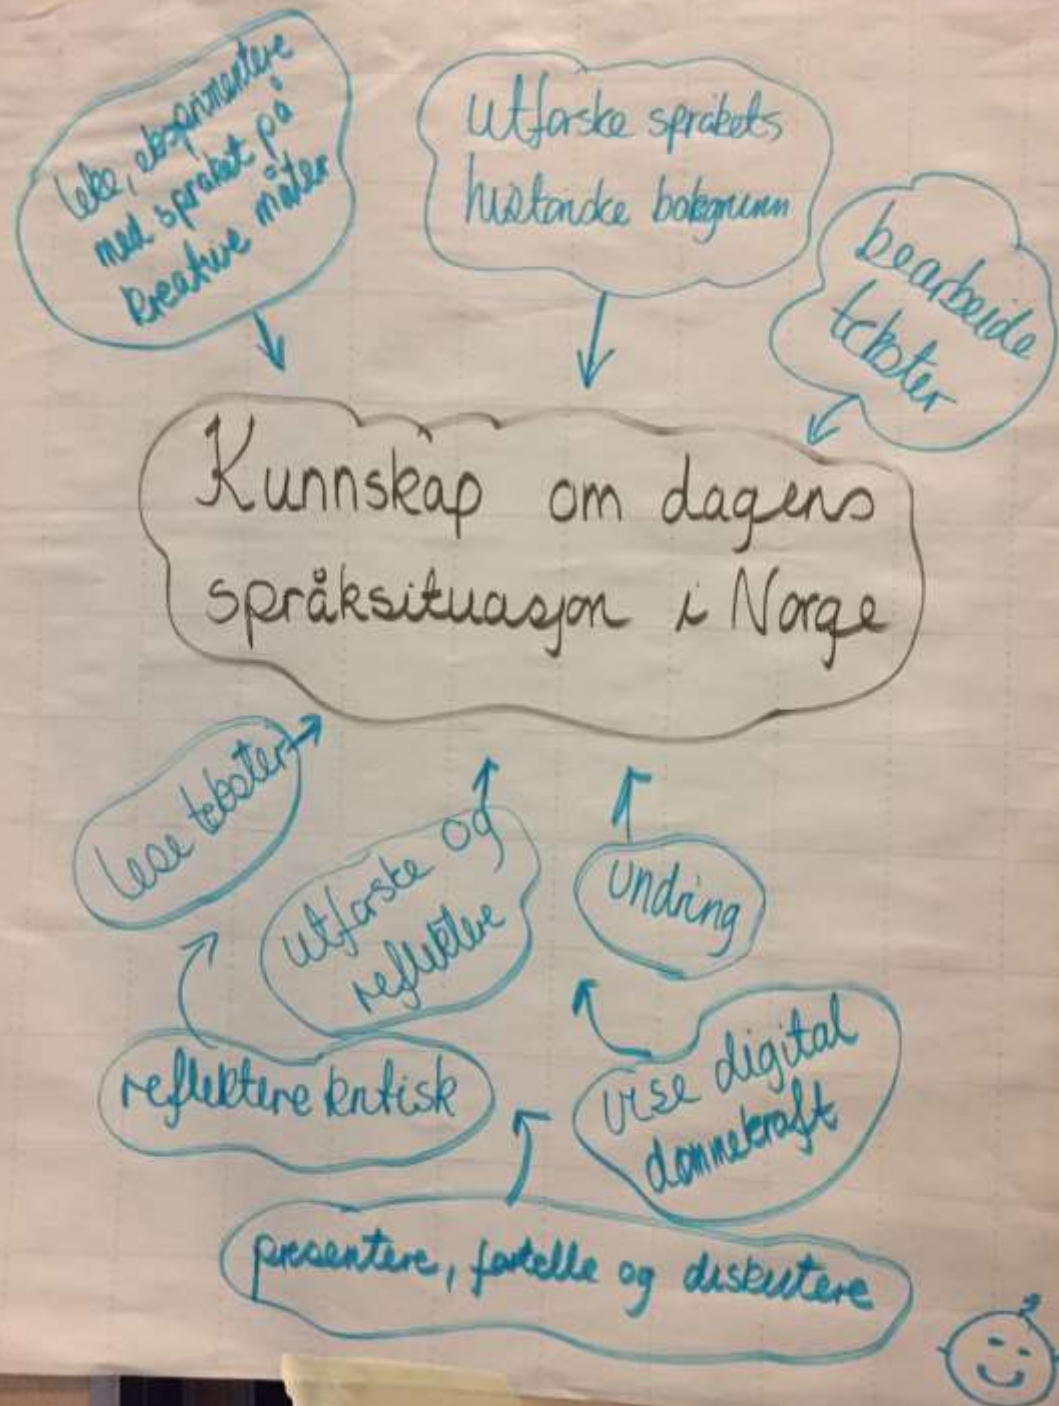 leke, eksperimentere
med språket på
kreative måter
Utforske språkets
historiske bakgrunn
bearbeide
tekster
Kunnskap om dagens
språksituasjon i Norge
lese tekster
utforske og
reflektere
undring
reflektere kritisk
vise digital
dømmekraft
presentere, fortelle og diskutere